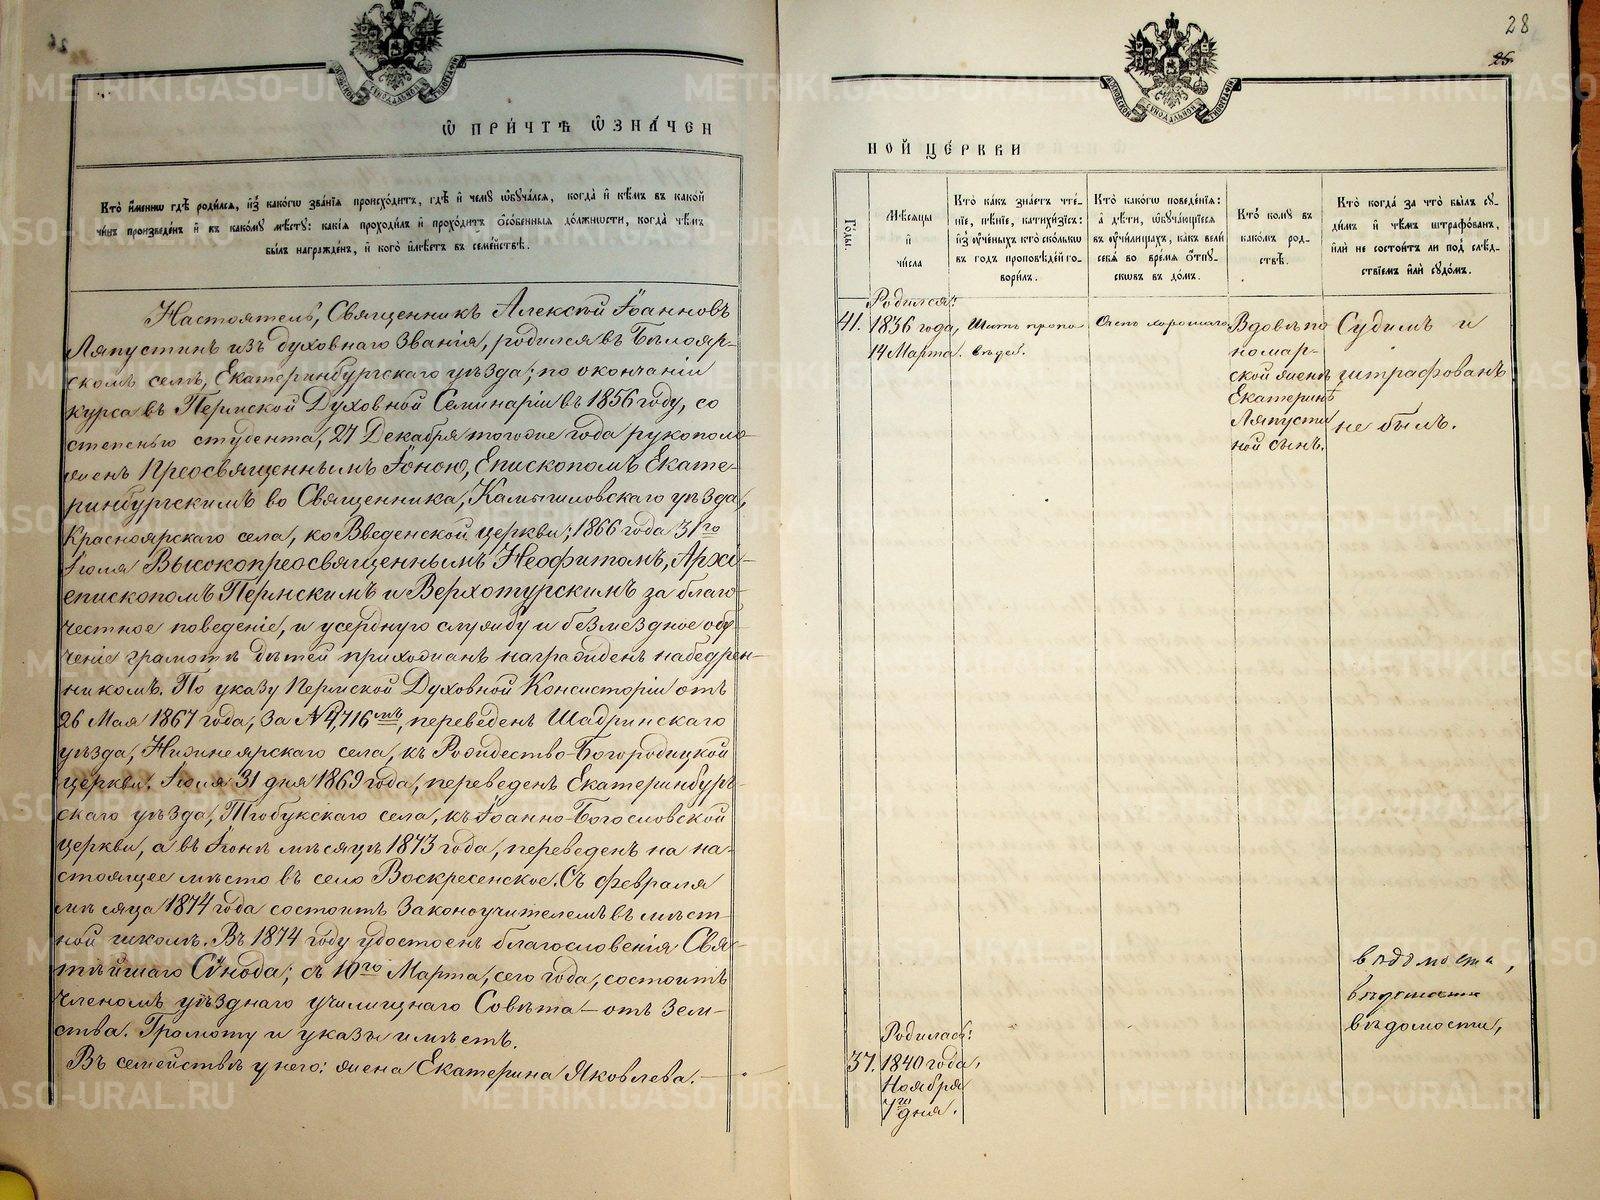 28
25
Ѿ ПРИЧТѢ ѾЗНАЧЕН
НОЙ ЦЕРКВИ
Кто именно гдѣ родился, изъ какого званія происходитъ, гдѣ и чему обучался, когда и кѣмъ въ какой
чинъ произведенъ и къ какому мѣсту: какія проходилъ и проходитъ особенныя должности, когда чѣмъ
былъ награжденъ, и кого имѣетъ въ семействѣ.
Настоятель, Священникъ Алексѣй Іоанновъ
Ляпустинъ изъ духовнаго званія, родился въ Бѣлояр-
скомъ селѣ, Екатеринбургскаго уѣзда; по окончаніи
курса въ Пермской Духовной Семинаріи въ 1856 году, со
степенью студента, 27 Декабря тогоже года рукополо-
женъ Преосвященнымъ Іоною, Епископомъ Екате-
ринбургскимъ во Священника, Камышловскаго уѣзда,
Красноярскаго села, ко Введенской церкви; 1866 года 31го
Іюля Высокопреосвященнымъ Неофитомъ, Архі-
епископомъ Пермскимъ и Верхотурскимъ за благо-
честное поведеніе, и усердную службу и безмездное обу-
ченіе грамотѣ дѣтей прихожанъ награжденъ набедрен-
никомъ. По указу Пермской Духовной Консисторіи отъ
26 Мая 1867 года, за № 4,716мъ, переведенъ Шадринскаго
уѣзда, Нижнеярскаго села, къ Рождество-Богородицкой
церкви. Іюля 31 дня 1869 года, переведенъ Екатеринбург-
скаго уѣзда, Тюбукскаго села, къ Іоанно-Богословской
церкви, а въ Іюнѣ мѣсяцѣ 1873 года, переведенъ на на-
стоящее мѣсто въ село Воскресенское. Съ февраля
мѣсяца 1874 года состоитъ Законоучителемъ въ мѣст-
ной школѣ. Въ 1874 году удостоенъ благословенія Свя-
тѣйшаго Сѵнода; съ 10го Марта, сего года, состоитъ
членомъ уѣзднаго училищнаго Совѣта - отъ Зем-
ства. Грамоту и указы имѣетъ.
Въ семействѣ у него: жена Екатерина Яковлева.
Годы.
Мѣсяцы
и
числа
Кто какъ знаетъ чте-
ніе, пѣніе, катихизисъ:
изъ ученыхъ кто сколько
въ годъ проповѣдей го-
ворилъ.
Кто какого поведенія:
а дѣти, обучающіеся
въ училищахъ, какъ вели
себя во время отпу-
сковъ въ домъ.
Кто кому въ
какомъ род-
ствѣ.
Кто когда за что былъ су-
димъ и чѣмъ штрафованъ,
или не состоитъ ли подъ слѣд-
ствіемъ или судомъ.
Родился:
41. 1836 года,
14 Марта.
Шесть пропо
вѣдей.
Очень хорошаго
Вдовѣ по
номар-
ской женѣ
Екатеринѣ
Ляпусти
ной сынъ.
Судимъ и
штрафованъ
не былъ.
вѣдомости,
вѣдомости
вѣдомости,
Родилась:
37. 1840 года,
Ноября
7го дня.
METRIKI.GASO-URAL.RU